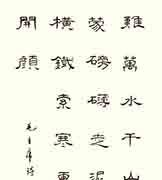 難萬水千山
蒙磅礴走泥
橫鐵索寒更
開顏
毛主席詩